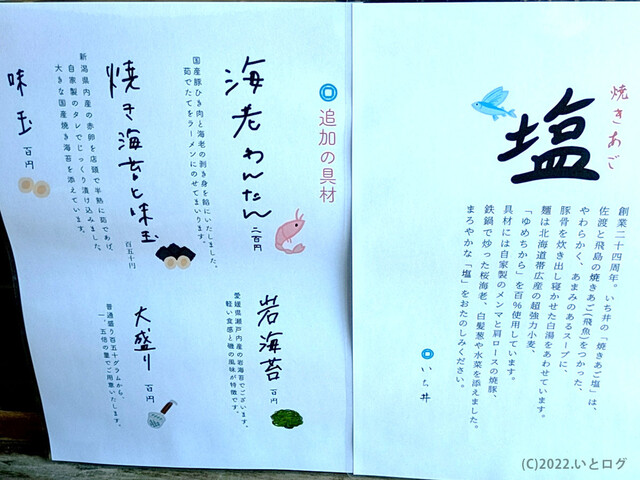 焼きあご
塩
創業二十四周年。いち井の「焼きあご塩」は、
佐渡と飛島の焼きあご(飛魚)をつかった、
やわらかく、あまみのあるスープに、
豚骨を炊き出し寝かせた白湯をあわせています。
麺は北海道帯広産の超強力小麦、
「ゆめちから」を百%使用しています。
具材には自家製のメンマと肩ロースの焼豚、
鉄鍋で炒った桜海老、白髪葱や水菜を添えました。
まろやかな「塩」をおたのしみください。
いち井
追加の具材
海老わんたん
二百円
国産豚ひき肉と海老の剥き身を餡にいたしました。
茹でたてをラーメンにのせてまいります。
焼き海苔と味玉
百五十円
新潟県内産の赤卵を店頭で半熟に茹であげ、
自家製のタレでじっくり漬け込みました。
大きな国産焼き海苔を添えています。
味玉
百円
岩海苔
百円
愛媛県瀬戸内産の岩海苔でございます。
軽い食感と磯の風味が特徴です。
大盛り
百円
普通盛り百五十グラムから、
一、五倍の量でご用意いたします。
(C)2022.いとログ